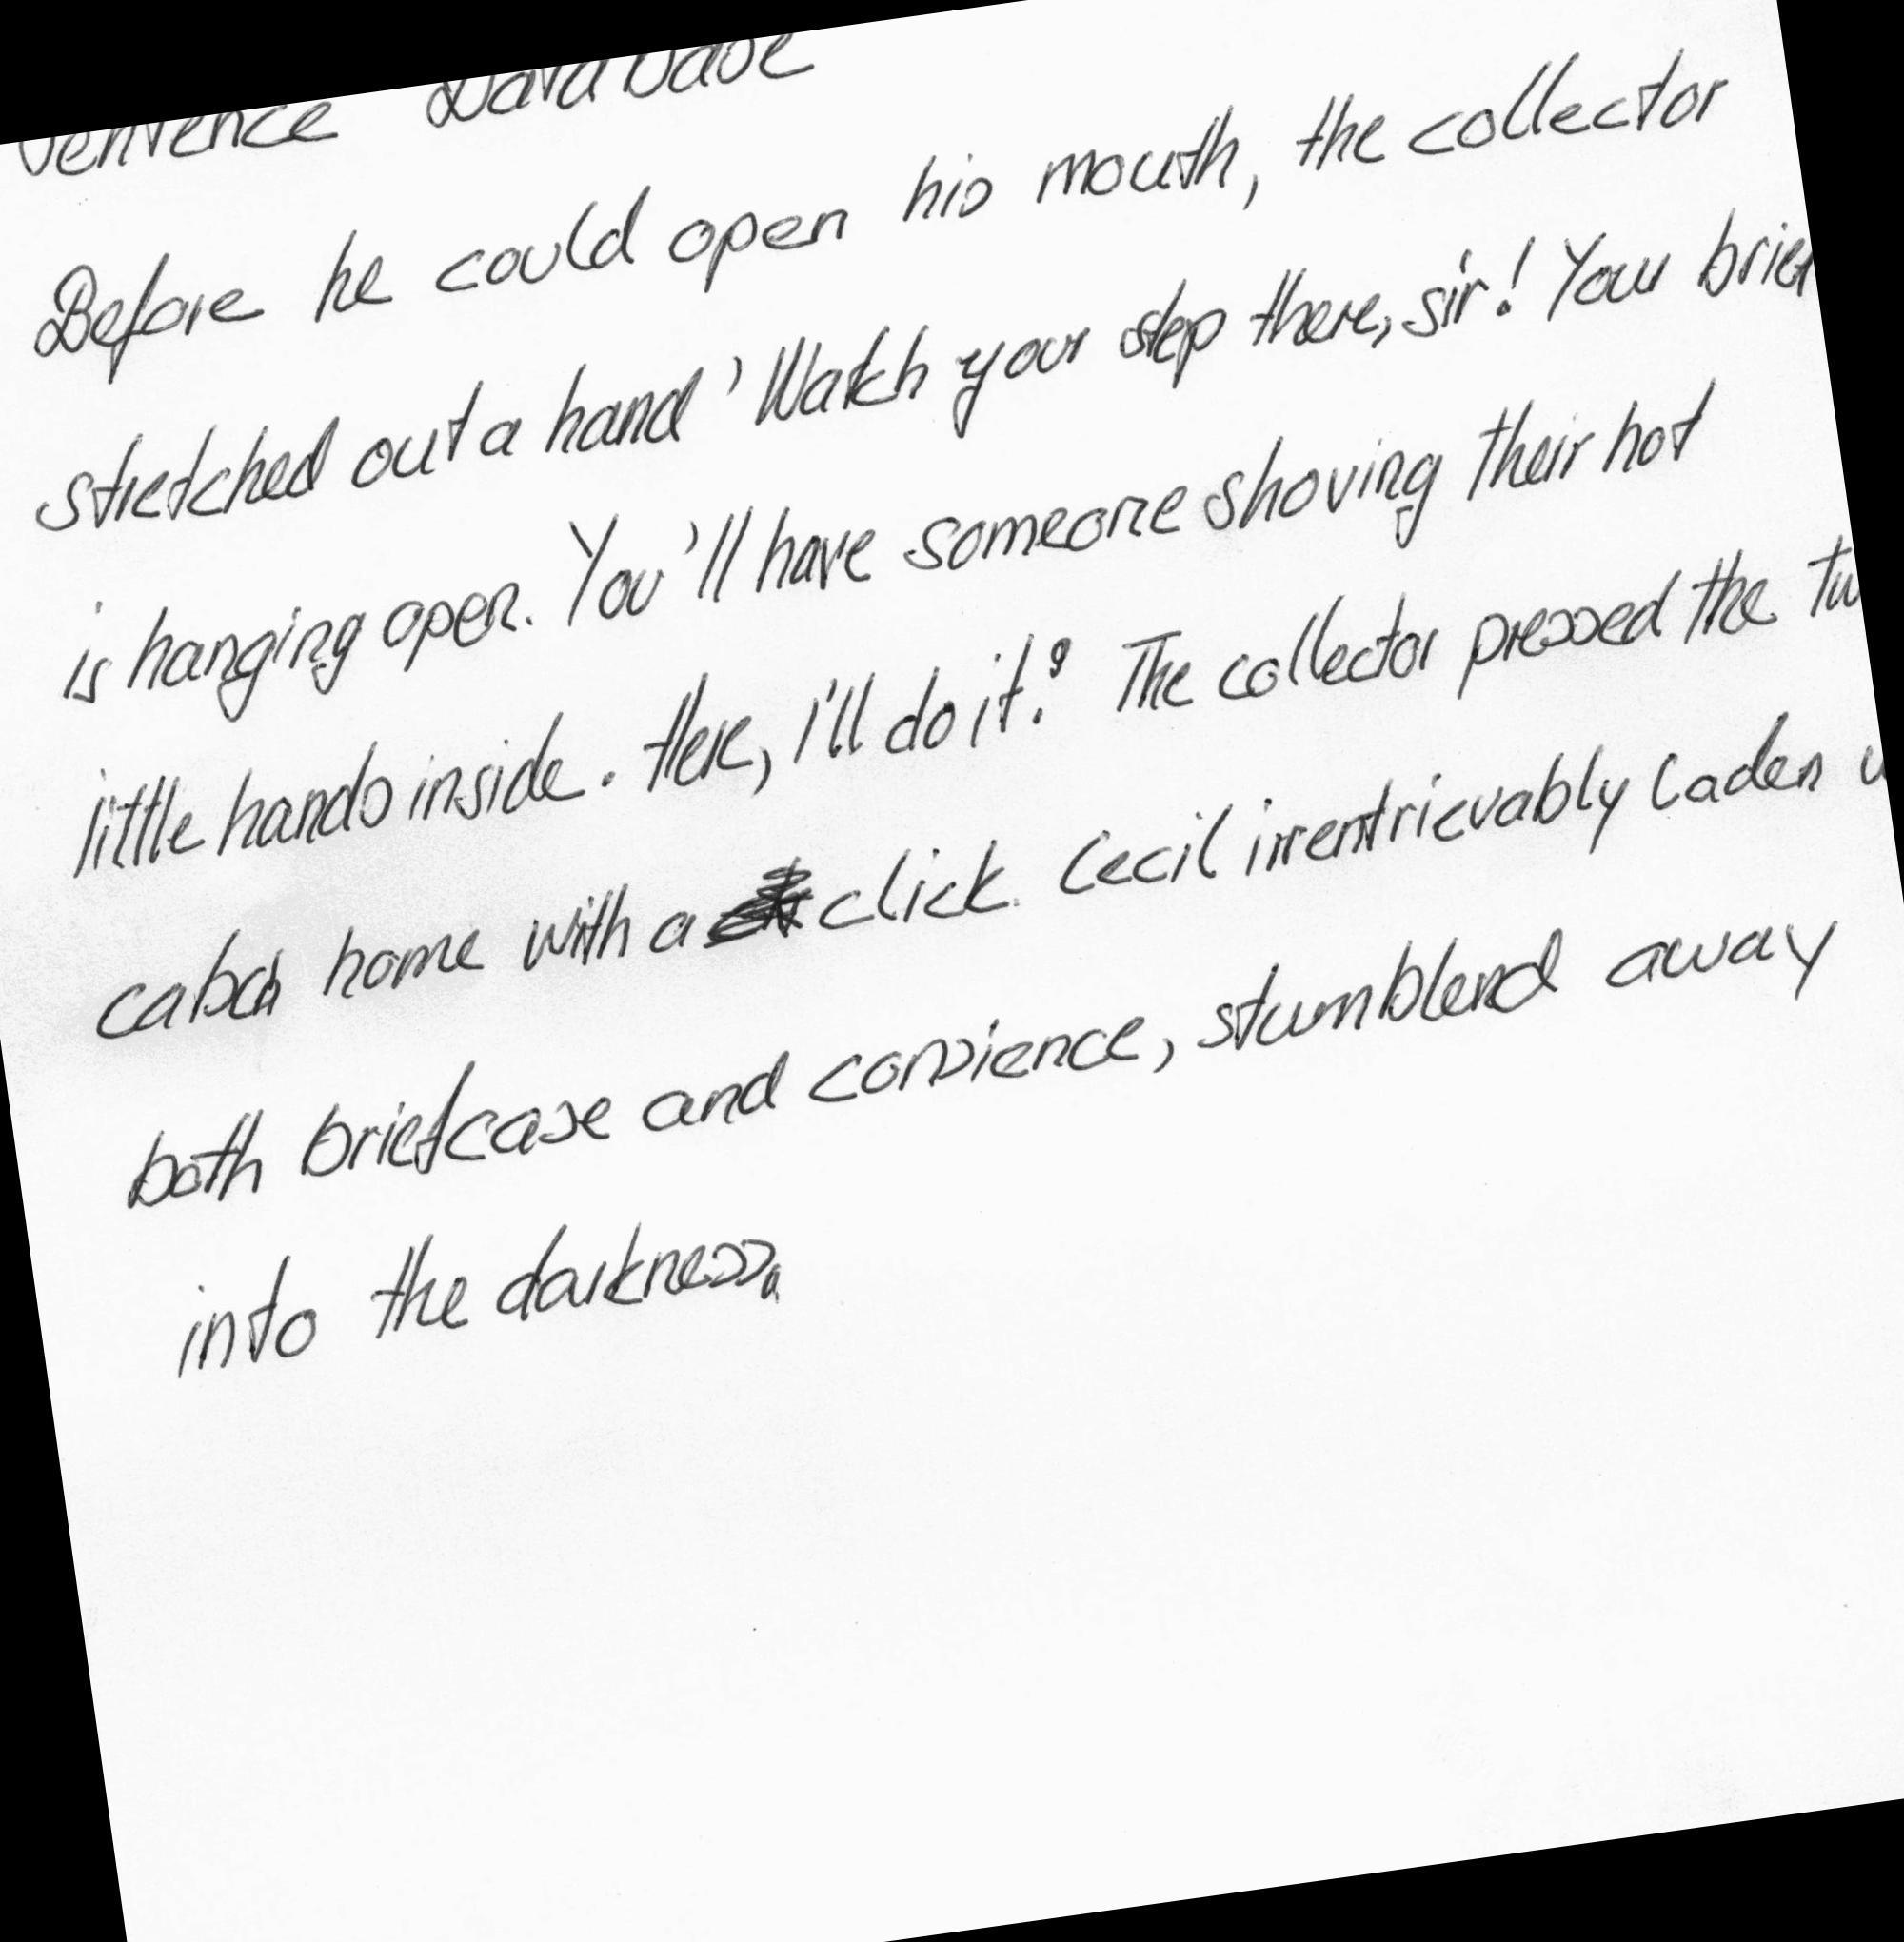 Sentence Database
Before he could open his mouth, the collector
stretched out a hand 'Watch your step there, sir! Your brief
is hanging open. You'll have someone shoving their hot
little hands inside. Here, I'll do it.' The collector pressed the
home with a click. Cecil irrentrievably laden
both briefcase and consience, stumblend away
into the darkness.